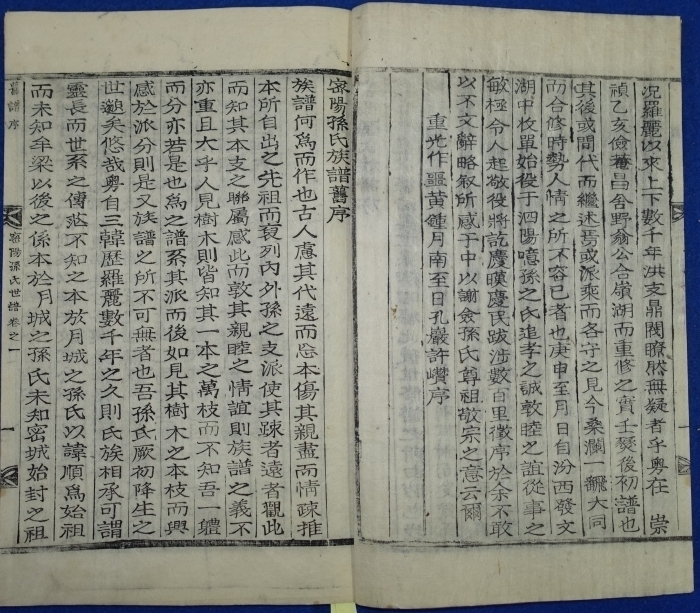 況羅麗以來上下數千年洪支鼎閥瞭然無疑者乎粤在 崇
禎乙亥儉菴昌舍野翁公合嶺湖而重修之實壬燹後初譜也
其後或間代而繼述焉或派乘而各守之見今桑瀾一飜大同
而合修時勢人情之所不容已者也庚申至月日自汾西發文
湖中枚單始役于泗陽噫孫之氏追孝之誠敦睦之誼從事之
敏極令人起敬役將訖慶暯慶民跋涉數百里徵序於余不敢
以不文辭略叙所感于中以謝僉孫氏尊祖敬宗之意云爾
重光作噩黃鍾月南至日孔巖許巑序
密陽孫氏族譜舊序
族譜何爲而作也古人慮其代遠而忘本傷其親盡而情疎推
本所自出之先祖而裒列內外孫之支派使其疎者遠者觀此
而知其本支之聯屬感此而敦其親睦之情誼則族譜之義不
亦重且大乎人見樹木則皆知其一本之萬枝而不知吾一軆
而分亦若是也爲之譜系其派而後如見其樹木之本枝而興
感於派分則是又族譜之所不可無者也吾孫氏厥初降生之
世邈矣悠哉粤自三韓歷羅麗數千年之久則氏族相承可謂
靈長而世系之傳茫不知之本放月城之孫氏以諱順爲始祖
而未知牟梁以後之係本於月城之孫氏未知密城始封之祖
舊譜序
密陽孫氏世譜 卷之一
一